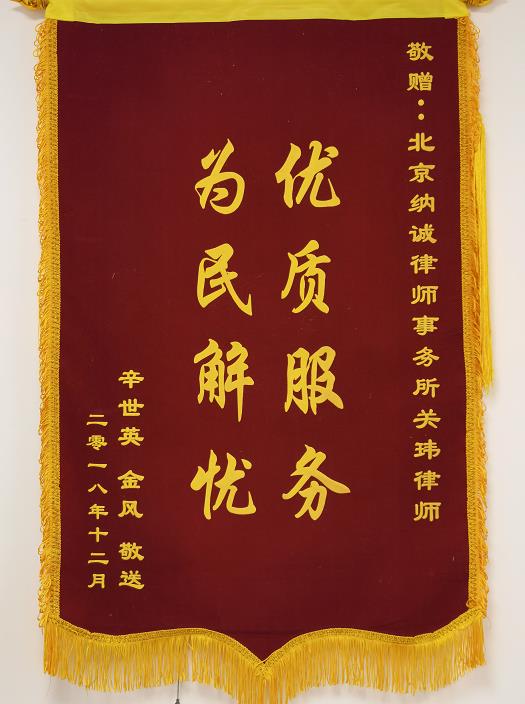 敬赠：北京纳诚律师事务所关玮律师
优质服务
为民解忧
辛世英 金风 敬送
二零一八年十二月